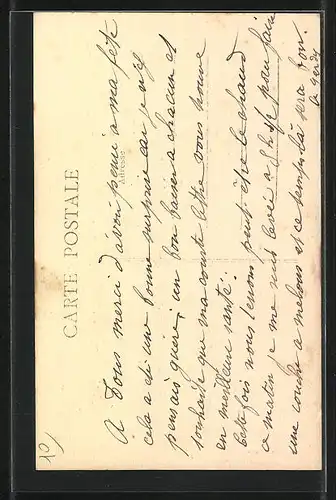 CARTE POSTALE
Adresse
A Vous merci d'avoir pensé a ma fête
cela a été une bonne surprise car je n'y
pensais guère, un bon baiser a chacun et
souhaite que ma courte lettre vous trouve
en meilleure santé.
Cette fois nous tenons peut être le chaud
a matin je me suis levée a 5h pour faire
une couche a melons et ce temps là sera bon.
10/